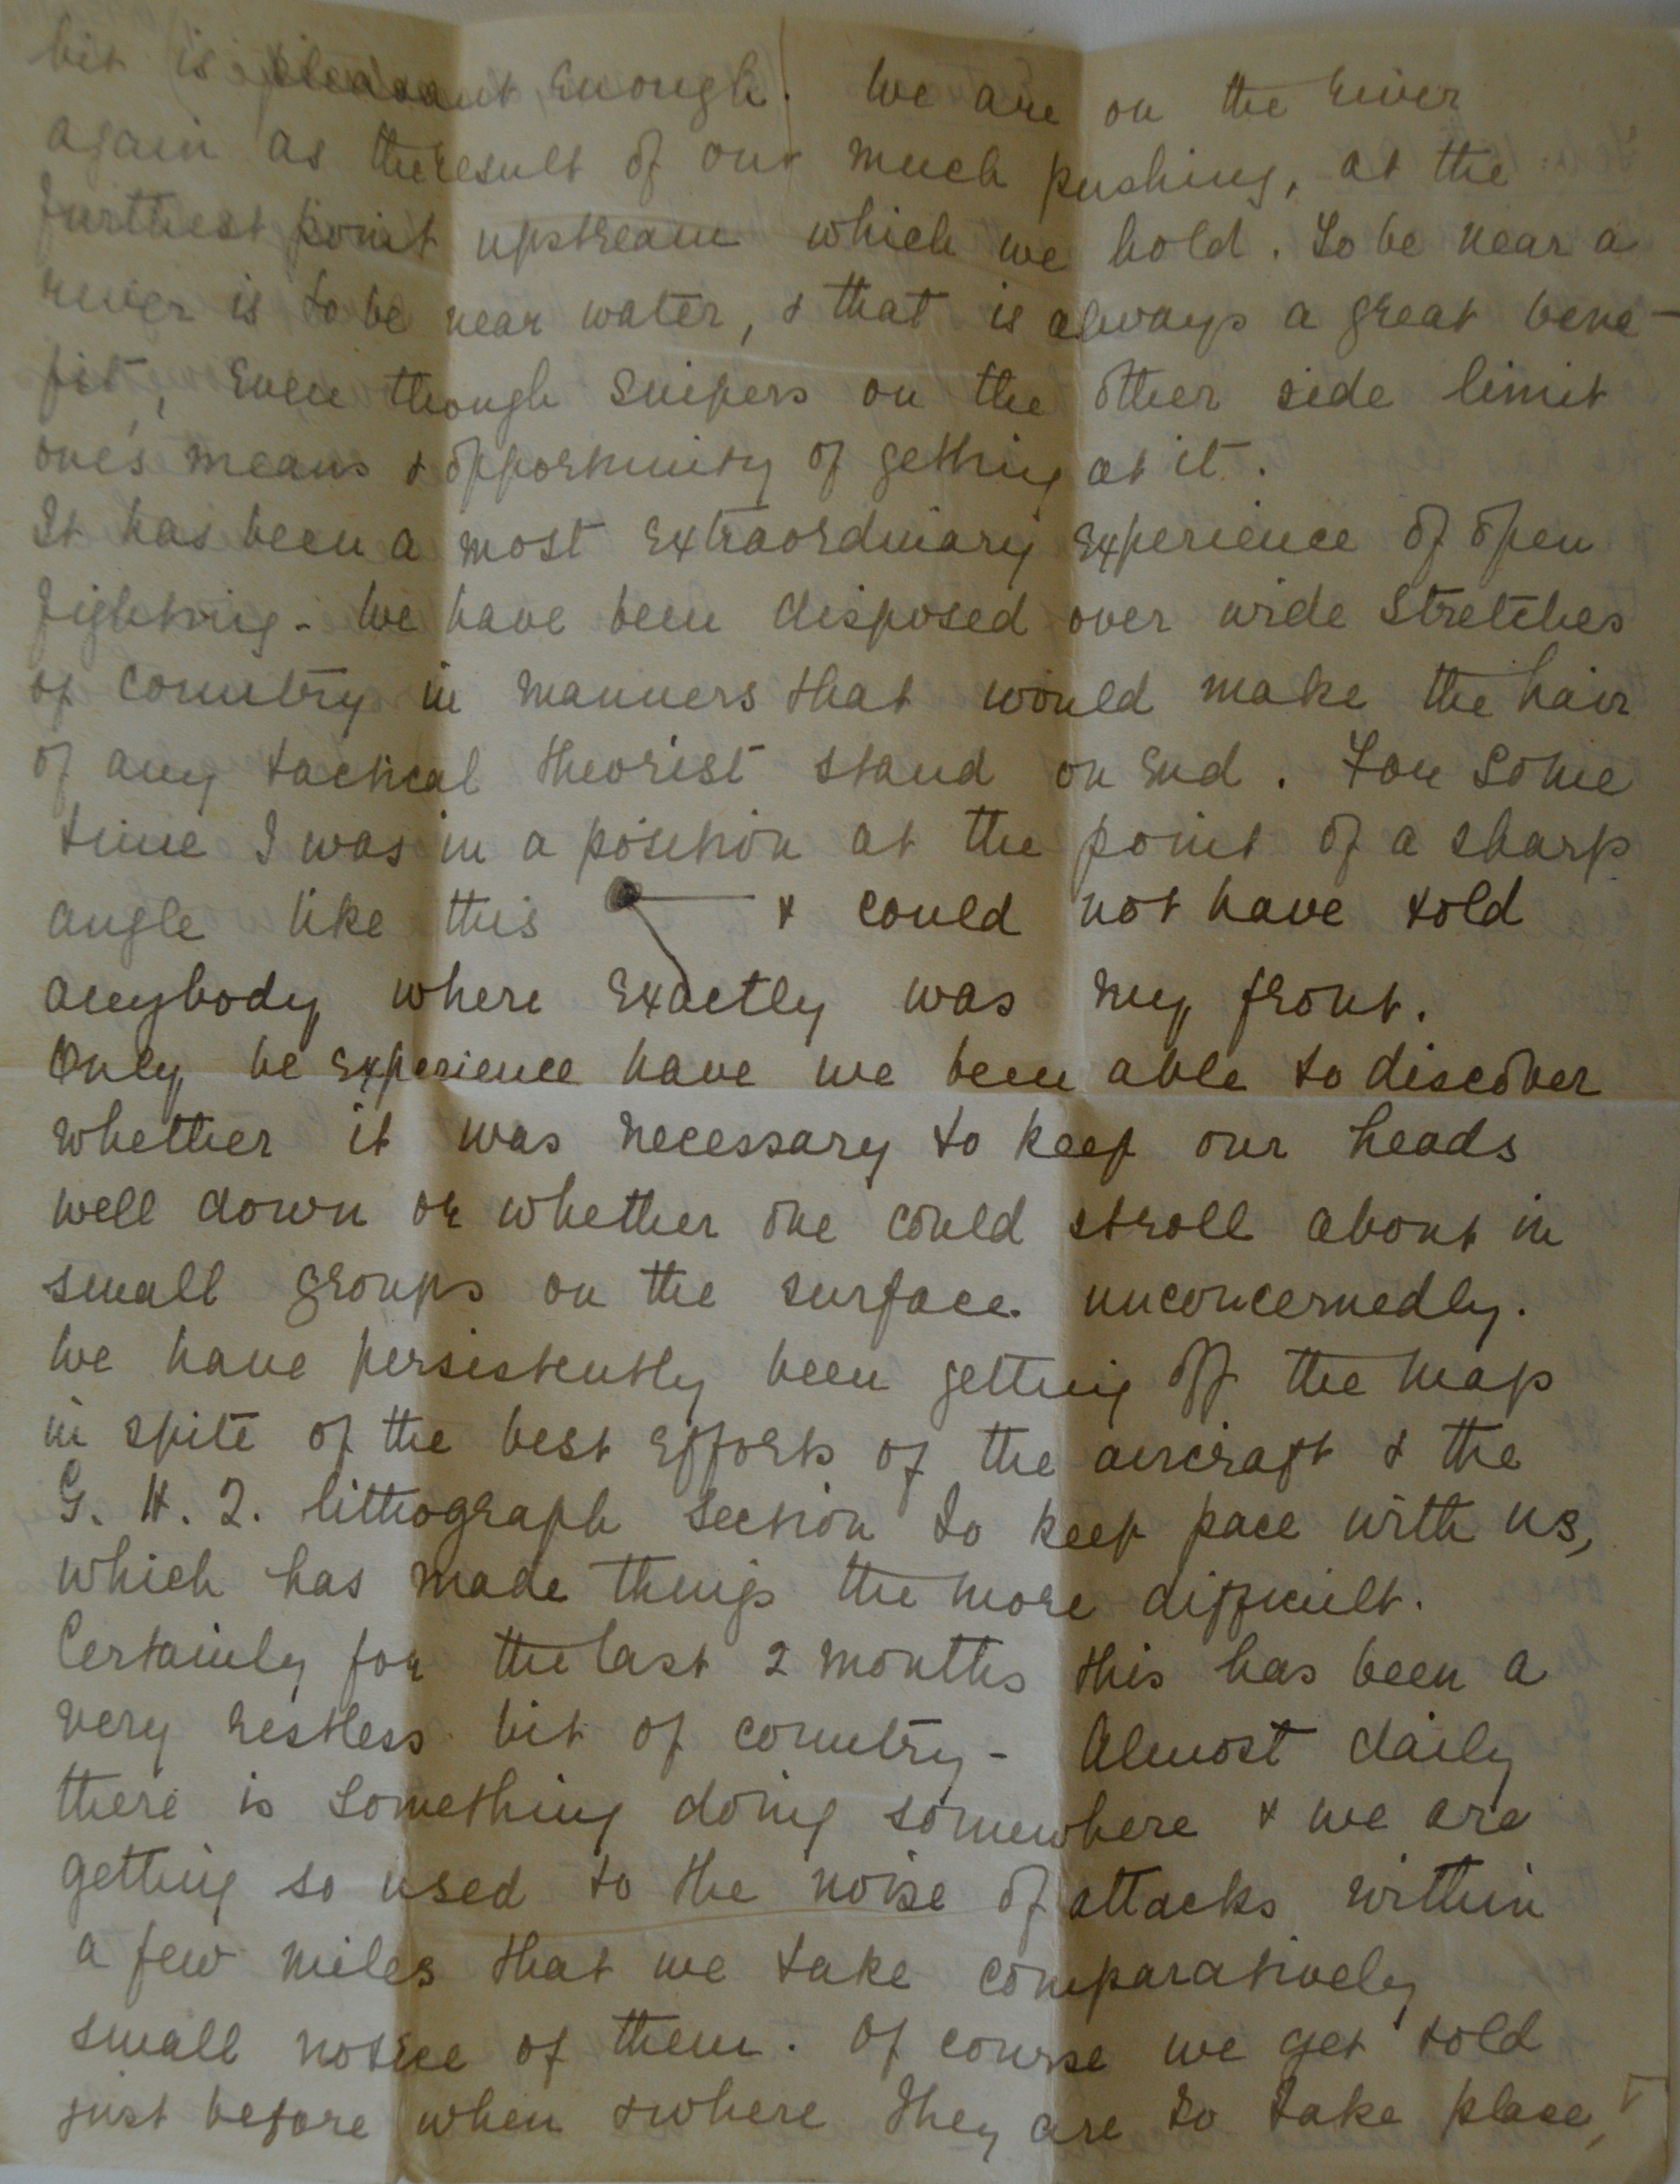 bit is pleasant enough. We are on the river
again as the result of our much pushing, at the
furthest point upstream which we hold. To be near a
river is to be near water, & that is always a great bene-
fit, even though snipers on the other side limit
one's means & opportunity of getting at it.
It has been a most extraordinary experience of open
fighting - We have been disposed over wide stretches
of country in manners that would make the hair
of any tactical theorist stand on end. For some
time I was in a position at the point of a sharp
angle like this & could not have told
anybody where exactly was my front.
Only be experience have we been able to discover
whether it was necessary to keep our heads
well down or whether one could stroll about in
small groups on the surface unconcernedly.
We have persistently been getting off the map
in spite of the best efforts of the aircraft & the
G. H. Q. lithograph section to keep pace with us,
which has made things the more difficult.
Certainly for the last 2 months this has been a
very restless bit of country - Almost daily
there is something doing somewhere & we are
getting so used to the noise of attacks within
a few miles that we take comparatively
small notice of them. Of course we get told
just before when & where they are to take place,